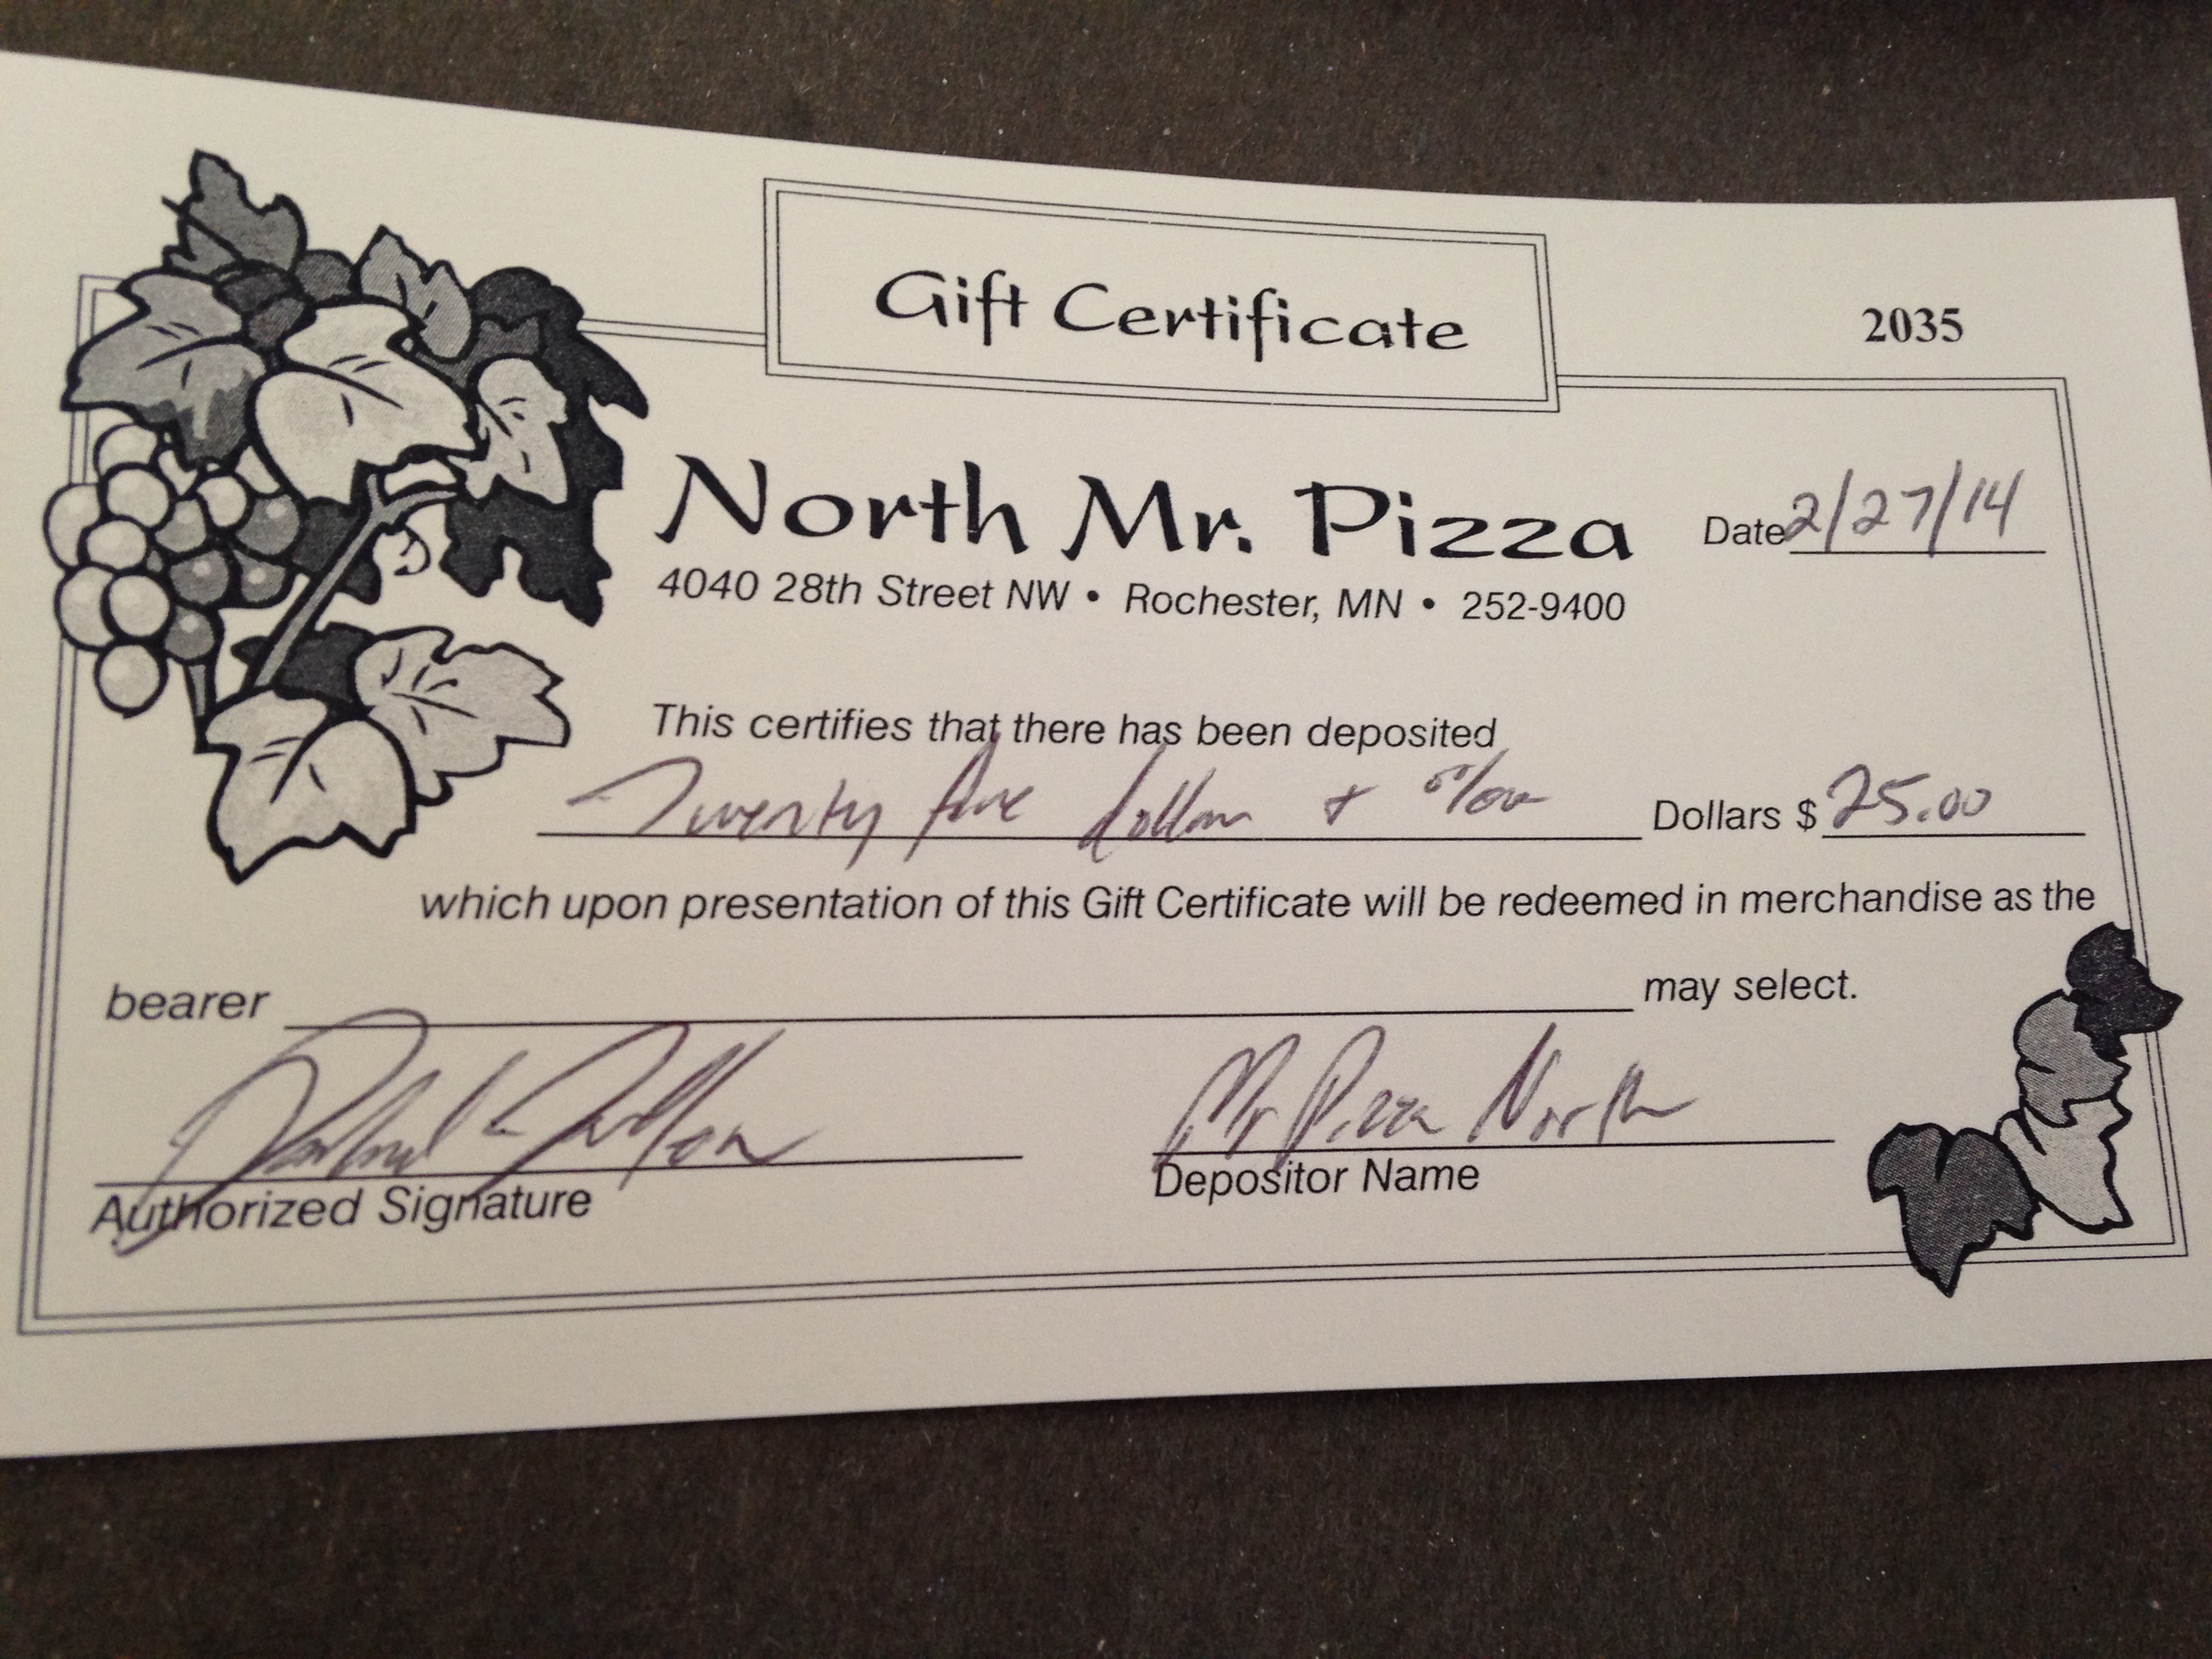 Gift Certificate
2035
North Mr. Pizza Date 2/27/14
4040 28th Street NW • Rochester, MN • 252-9400
This certifies that there has been deposited
Twenty five dollars + 0/00 Dollars $ 25.00
which upon presentation of this Gift Certificate will be redeemed in merchandise as the
bearer may select.
Mr Pizza North
Authorized Signature Depositor Name